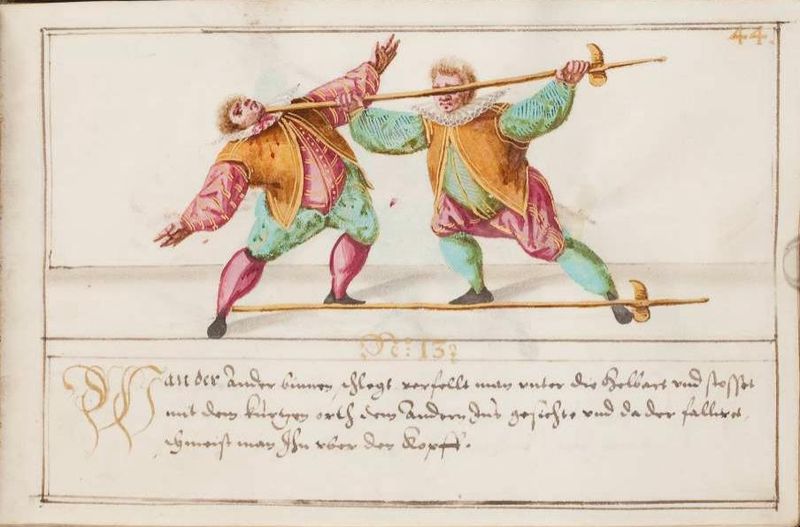 44.
No: 13:
Wan der Ander binnen schlegt verfellt man vnter die Helbart vnd stosset
mit dem kurtzen orth dem Andern Ins gesichte vnd da der falliret,
schmeist man Ihn vber den Kopff.